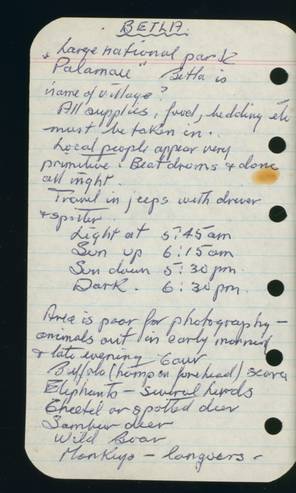 BETLA.
"Large national park
Palamau" Betla is
name of village?
All supplies, food, bedding etc
must be taken in.
Local people appear very
primitive. Beat drums & dance
all night
Travel in jeeps with driver
& spotter.
Light at 5:45am
Sun up 6:15am
Sun down 5:30pm
Dark. 6:30pm.
Area is poor for photography –
animals out in early morning
& late evening Gaur
Buffalo (hump on forehead) scarce
Elephants – several herds
Cheetel or spotted deer
Sambur deer
Wild Boar
Monkeys – languers –